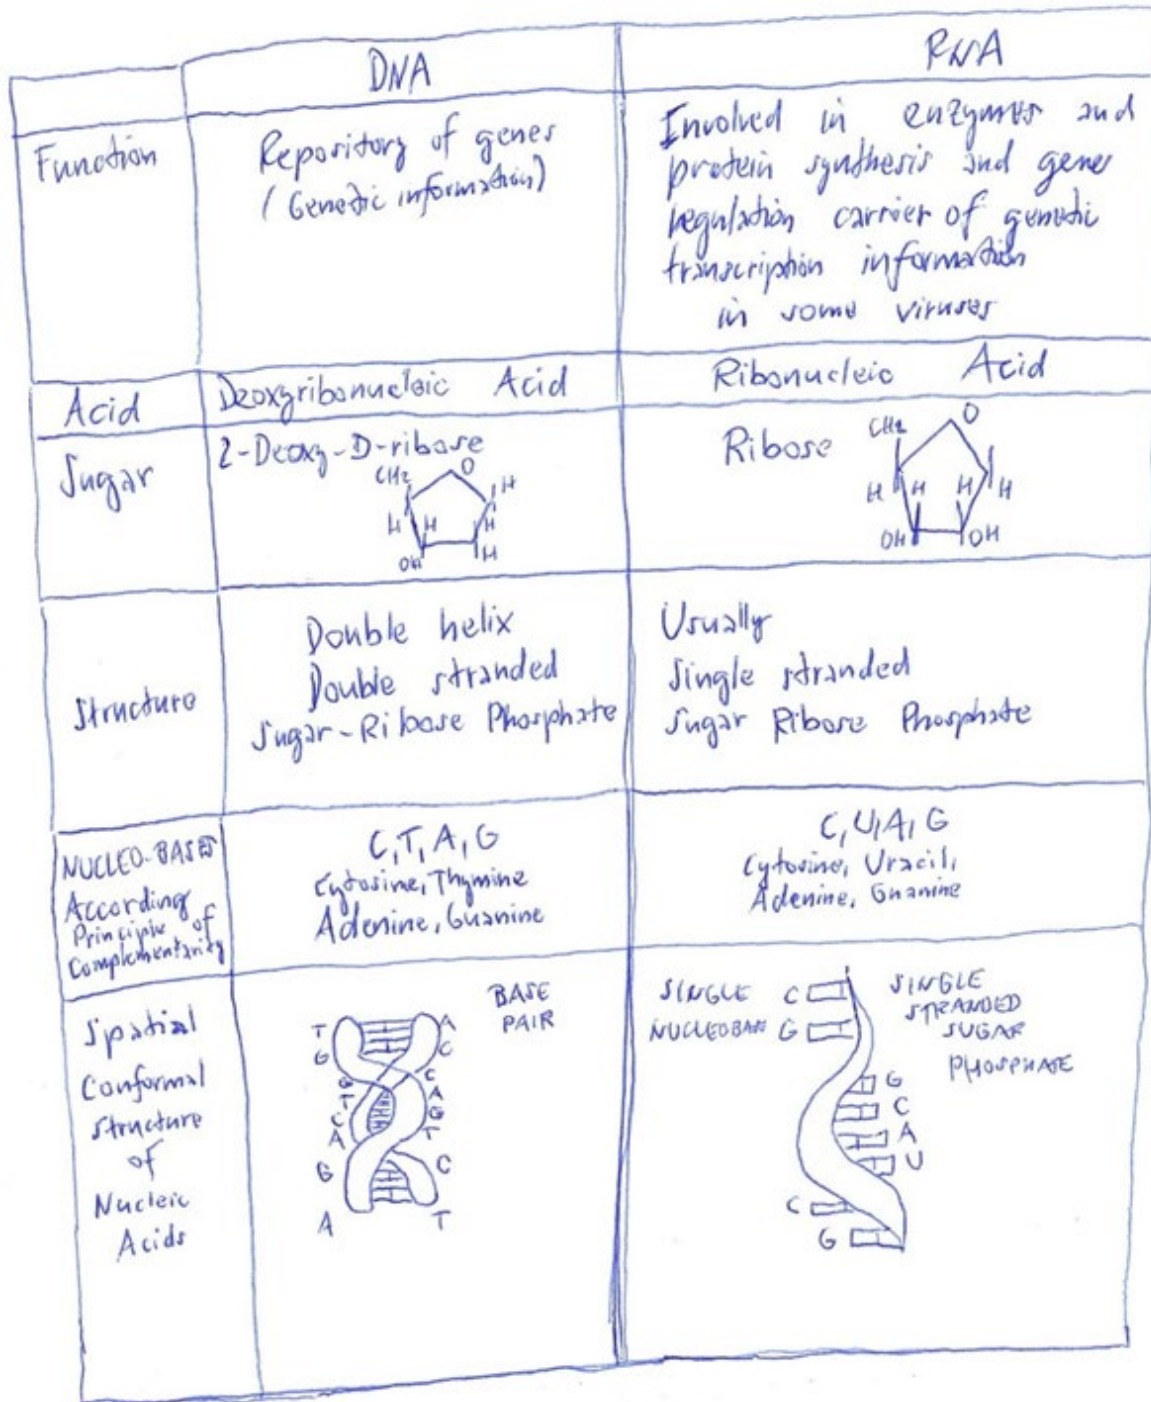 DNA
RNA
Function
Repository of genes
(Genetic information)
Involved in enzymes and
protein synthesis and gene
regulation carrier of genetic
transcription information
in some viruses
Acid
Deoxyribonucleic Acid
Ribonucleic Acid
Sugar
2-Deoxy-D-ribose
CH2
O
H
H
H
H
OH
H
Ribose
CH2
O
H
H
H
H
OH
OH
Structure
Double helix
Double stranded
Sugar-Ribose Phosphate
Usually
Single stranded
Sugar Ribose Phosphate
NUCLEO-BASES
According
Principle of
Complementarity
C, T, A, G
Cytosine, Thymine
Adenine, Guanine
C, U, A, G
Cytosine, Uracil,
Adenine, Guanine
Spatial
Conformal
Structure
of
Nucleic
Acids
BASE
PAIR
T
A
G
C
G
C
T
A
C
G
A
T
G
C
A
T
SINGLE
NUCLEOBAS
C
G
SINGLE
STRANDED
SUGAR
PHOSPHATE
G
C
A
U
C
G